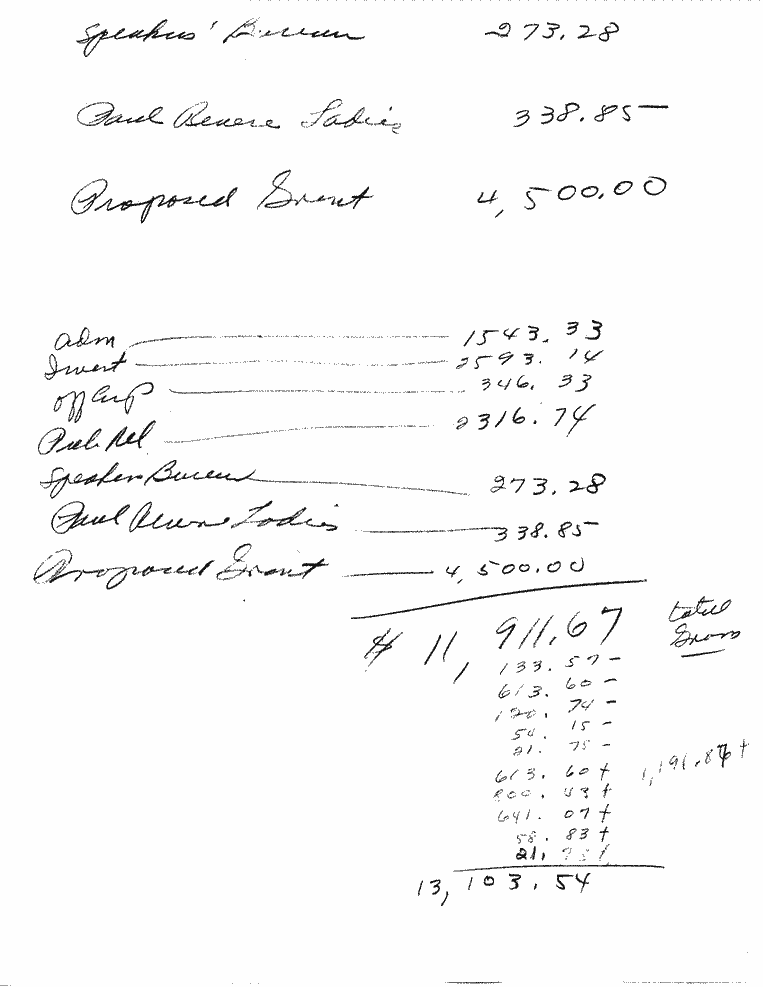 Speakers' Bureau 273.28
Paul Revere Ladies 338.85
Proposed Grant 4,500.00
Adm 1543.33
Invest 2593.14
Off 346.33
Pub Rel 2316.74
Speakers Bureau 273.28
Paul Revere Ladies 338.85
Proposed Grant 4,500.00
$ 11,911.67 total
133.57 -
613.60 -
120.74 -
54.15 -
21.75 -
613.60 + 1,191.87 +
800.43 +
641.07 +
58.83 +
21.75 +
13,103.54